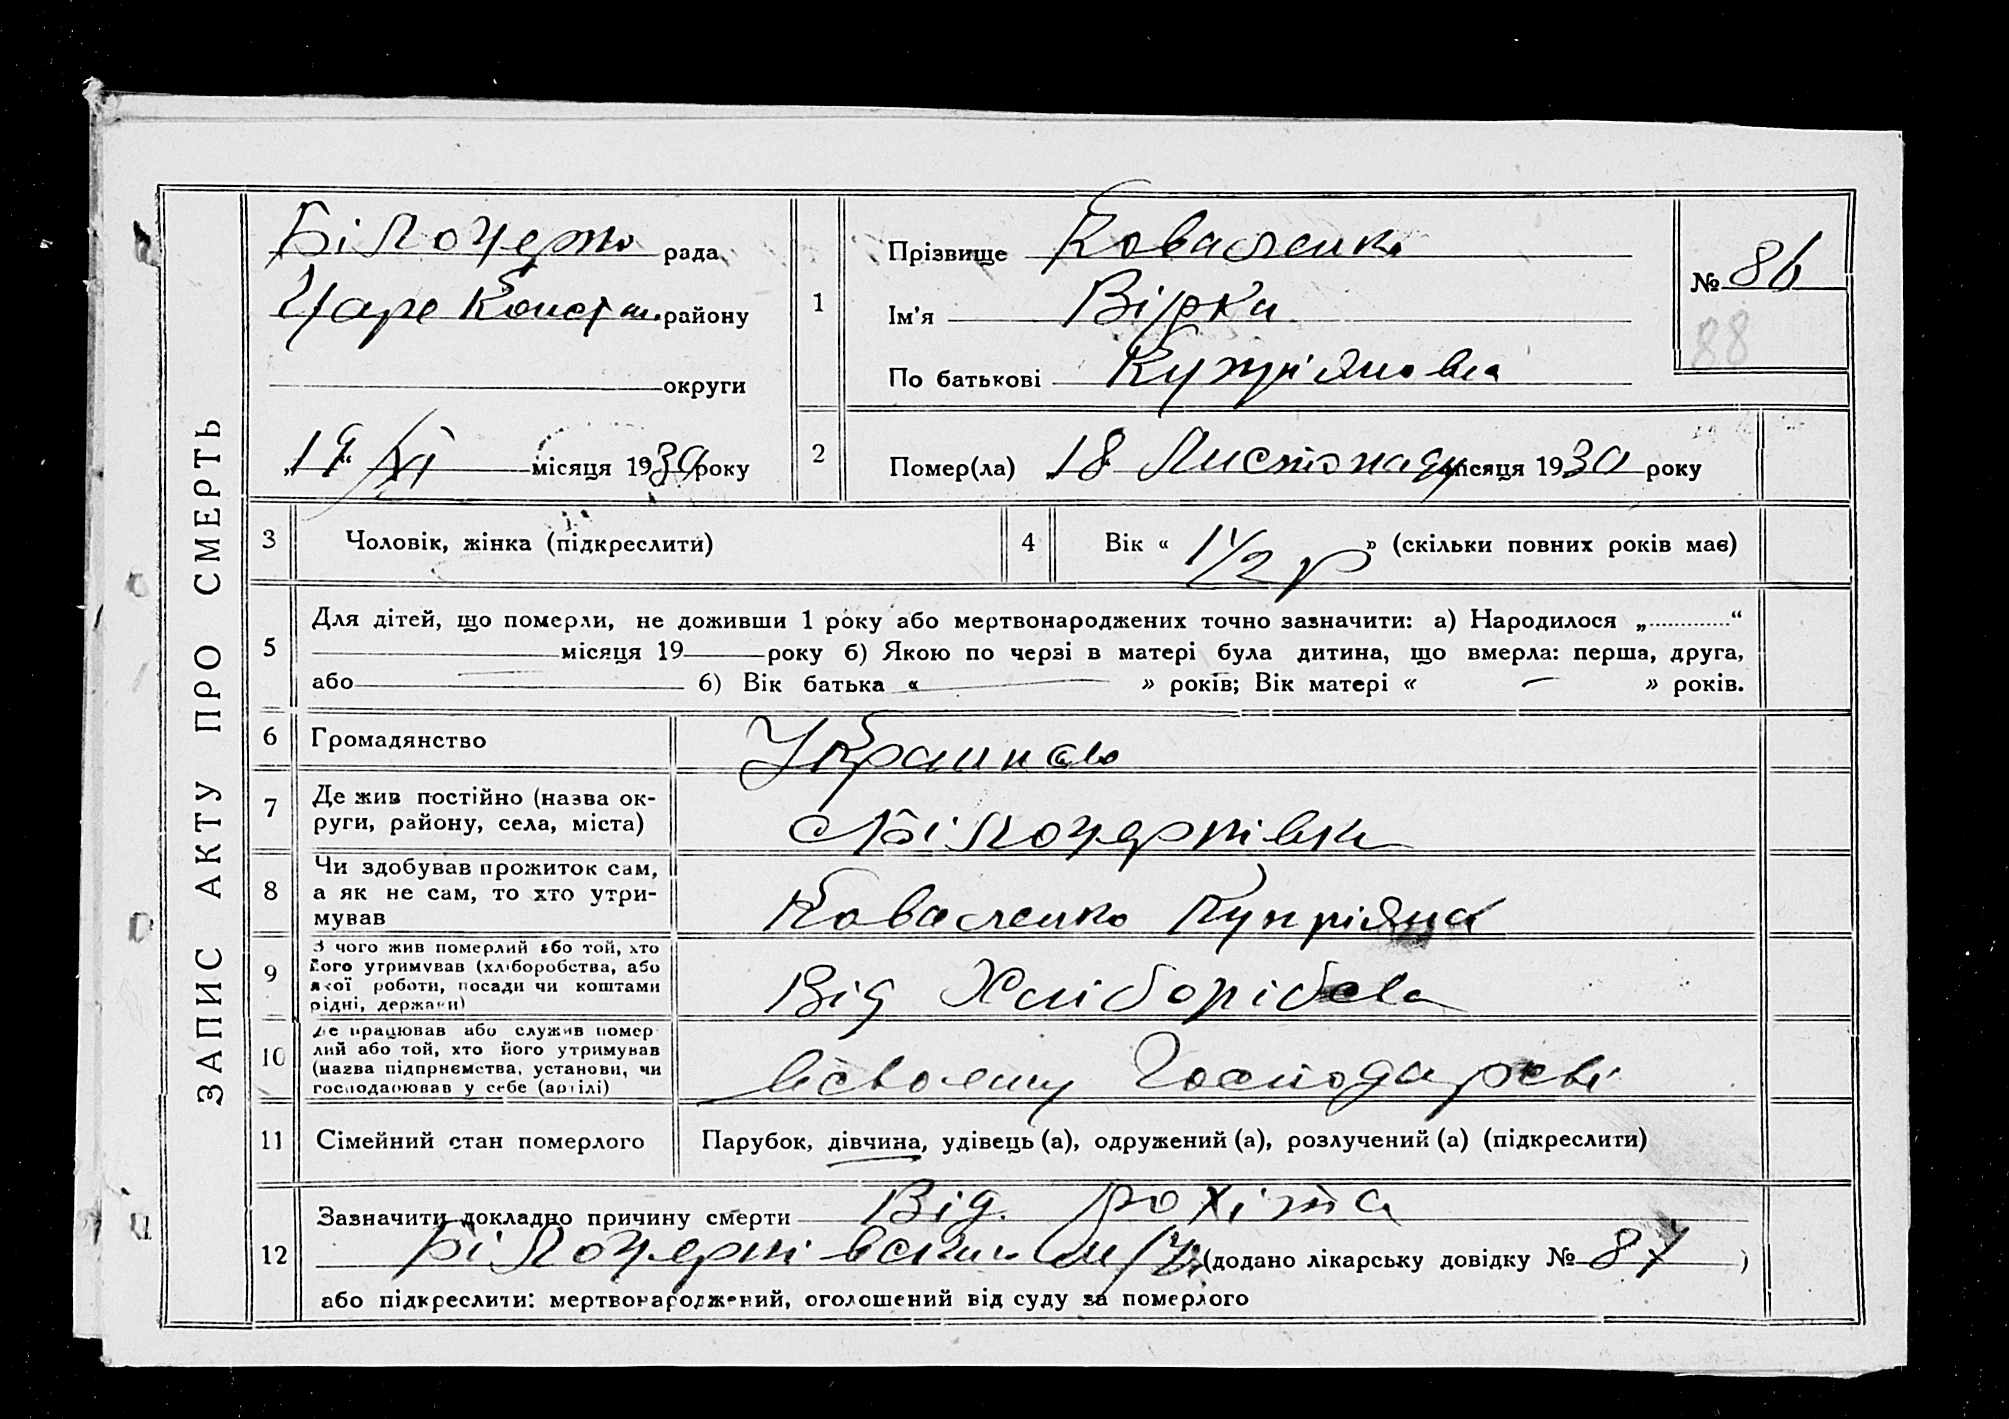 ЗАПИС АКТУ ПРО СМЕРТЬ
рада
Царе Конст. району
округи
„19“ XI місяця 1930 року
1
Прізвище Коваленко
Ім'я Вірка
По батькові Купріяновна
№ 86
88
2
Помер(ла) 18 Листопаду місяця 1930 року
3 Чоловік, жінка (підкреслити)
4 Вік « 1 1/2 р » (скільки повних років має)
5 Для дітей, що померли, не доживши 1 року або мертвонароджених точно зазначити: а) Народилося „............“
місяця 19 року б) Якою по черзі в матері була дитина, що вмерла: перша, друга,
або б) Вік батька « » років; Вік матері « » років.
6 Громадянство
7 Де жив постійно (назва ок-
руги, району, села, міста)
8 Чи здобував прожиток сам,
а як не сам, то хто утри-
мував
Коваленко Купріяна
9 З чого жив померлий або той, хто
його утримував (хліборобства, або
якої роботи, посади чи коштами
рідні, держави)
Від Хліборібсва
10 Де працював або служив помер
лий або той, хто його утримував
(назва підприємства, установи, чи
господарював у себе (артілі)
11 Сімейний стан померлого
Парубок, дівчина, удівець (а), одружений (а), розлучений (а) (підкреслити)
12 Зазначити докладно причину смерти Від рохіта
(додано лікарську довідку № 87 )
або підкреслити: мертвонароджений, оголошений від суду за померлого